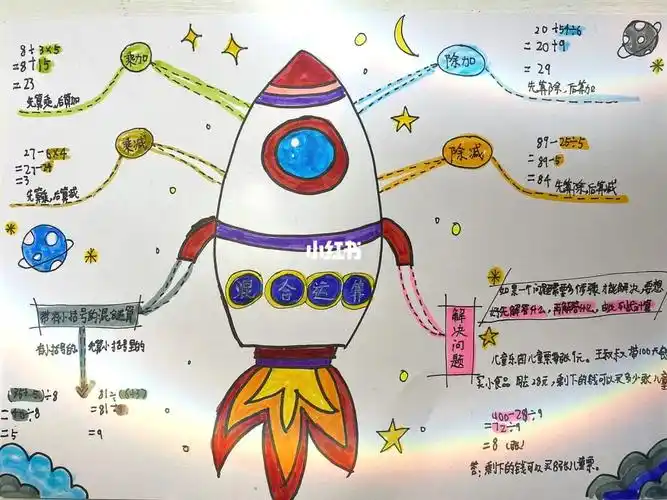 8+3×5
=8+15
=23
先算乘,后算加
乘加
27-6×4
=27-24
=3
先算乘,后算减
乘减
除加
20+54÷6
=20+9
=29
先算除,后算加
除减
89-25÷5
=89-5
=84
先算除,后算减
小红书
混合运算
带有小括号的混合运算
有小括号的
先算小括号里的
÷8
÷8
=5
81÷
=81÷
=9
解决问题
如果一个问题需要多个步骤才能解决,要想
好先解答什么,再解答什么,
儿童乐园儿童票每张
元。王叔叔带100元
买小食品
28元,剩下的钱可以买多少张儿童
-28÷9
=72÷9
=8(张)
答:剩下的钱可以买8张儿童票。